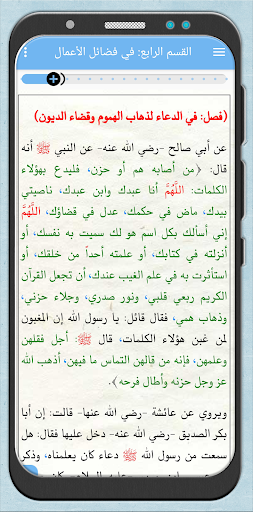 القسم الرابع: في فضائل الأعمال
(فصل: في الدعاء لذهاب الهموم وقضاء الديون)
عن أبي صالح -رضي الله عنه- عن النبي ﷺ أنه
قال: ﴿من أصابه هم أو حزن، فليدع بهؤلاء
الكلمات: اللَّهُمَّ أنا عبدك وابن عبدك، ناصيتي
بيدك، ماض في حكمك، عدل في قضاؤك، اللَّهُمَّ
إني أسألك بكل اسم هو لك سميت به نفسك، أو
أنزلته في كتابك، أو علمته أحداً من خلقك، أو
استأثرت به في علم الغيب عندك، أن تجعل القرآن
الكريم ربيع قلبي، ونور صدري، وجلاء حزني،
وذهاب همي، فقال قائل: يا رسول الله إن المغبون
لمن غبن هؤلاء الكلمات، قال ﷺ: أجل فقلهن
وعلمهن، فإنه من قالهن التماس ما فيهن، أذهب الله
عز وجل حزنه وأطال فرحه﴾.
ويروى عن عائشة -رضي الله عنها- قالت: إن أبا
بكر الصديق -رضي الله عنه- دخل عليها فقال: هل
سمعت من رسول الله ﷺ دعاء كان يعلمناه، وذكر